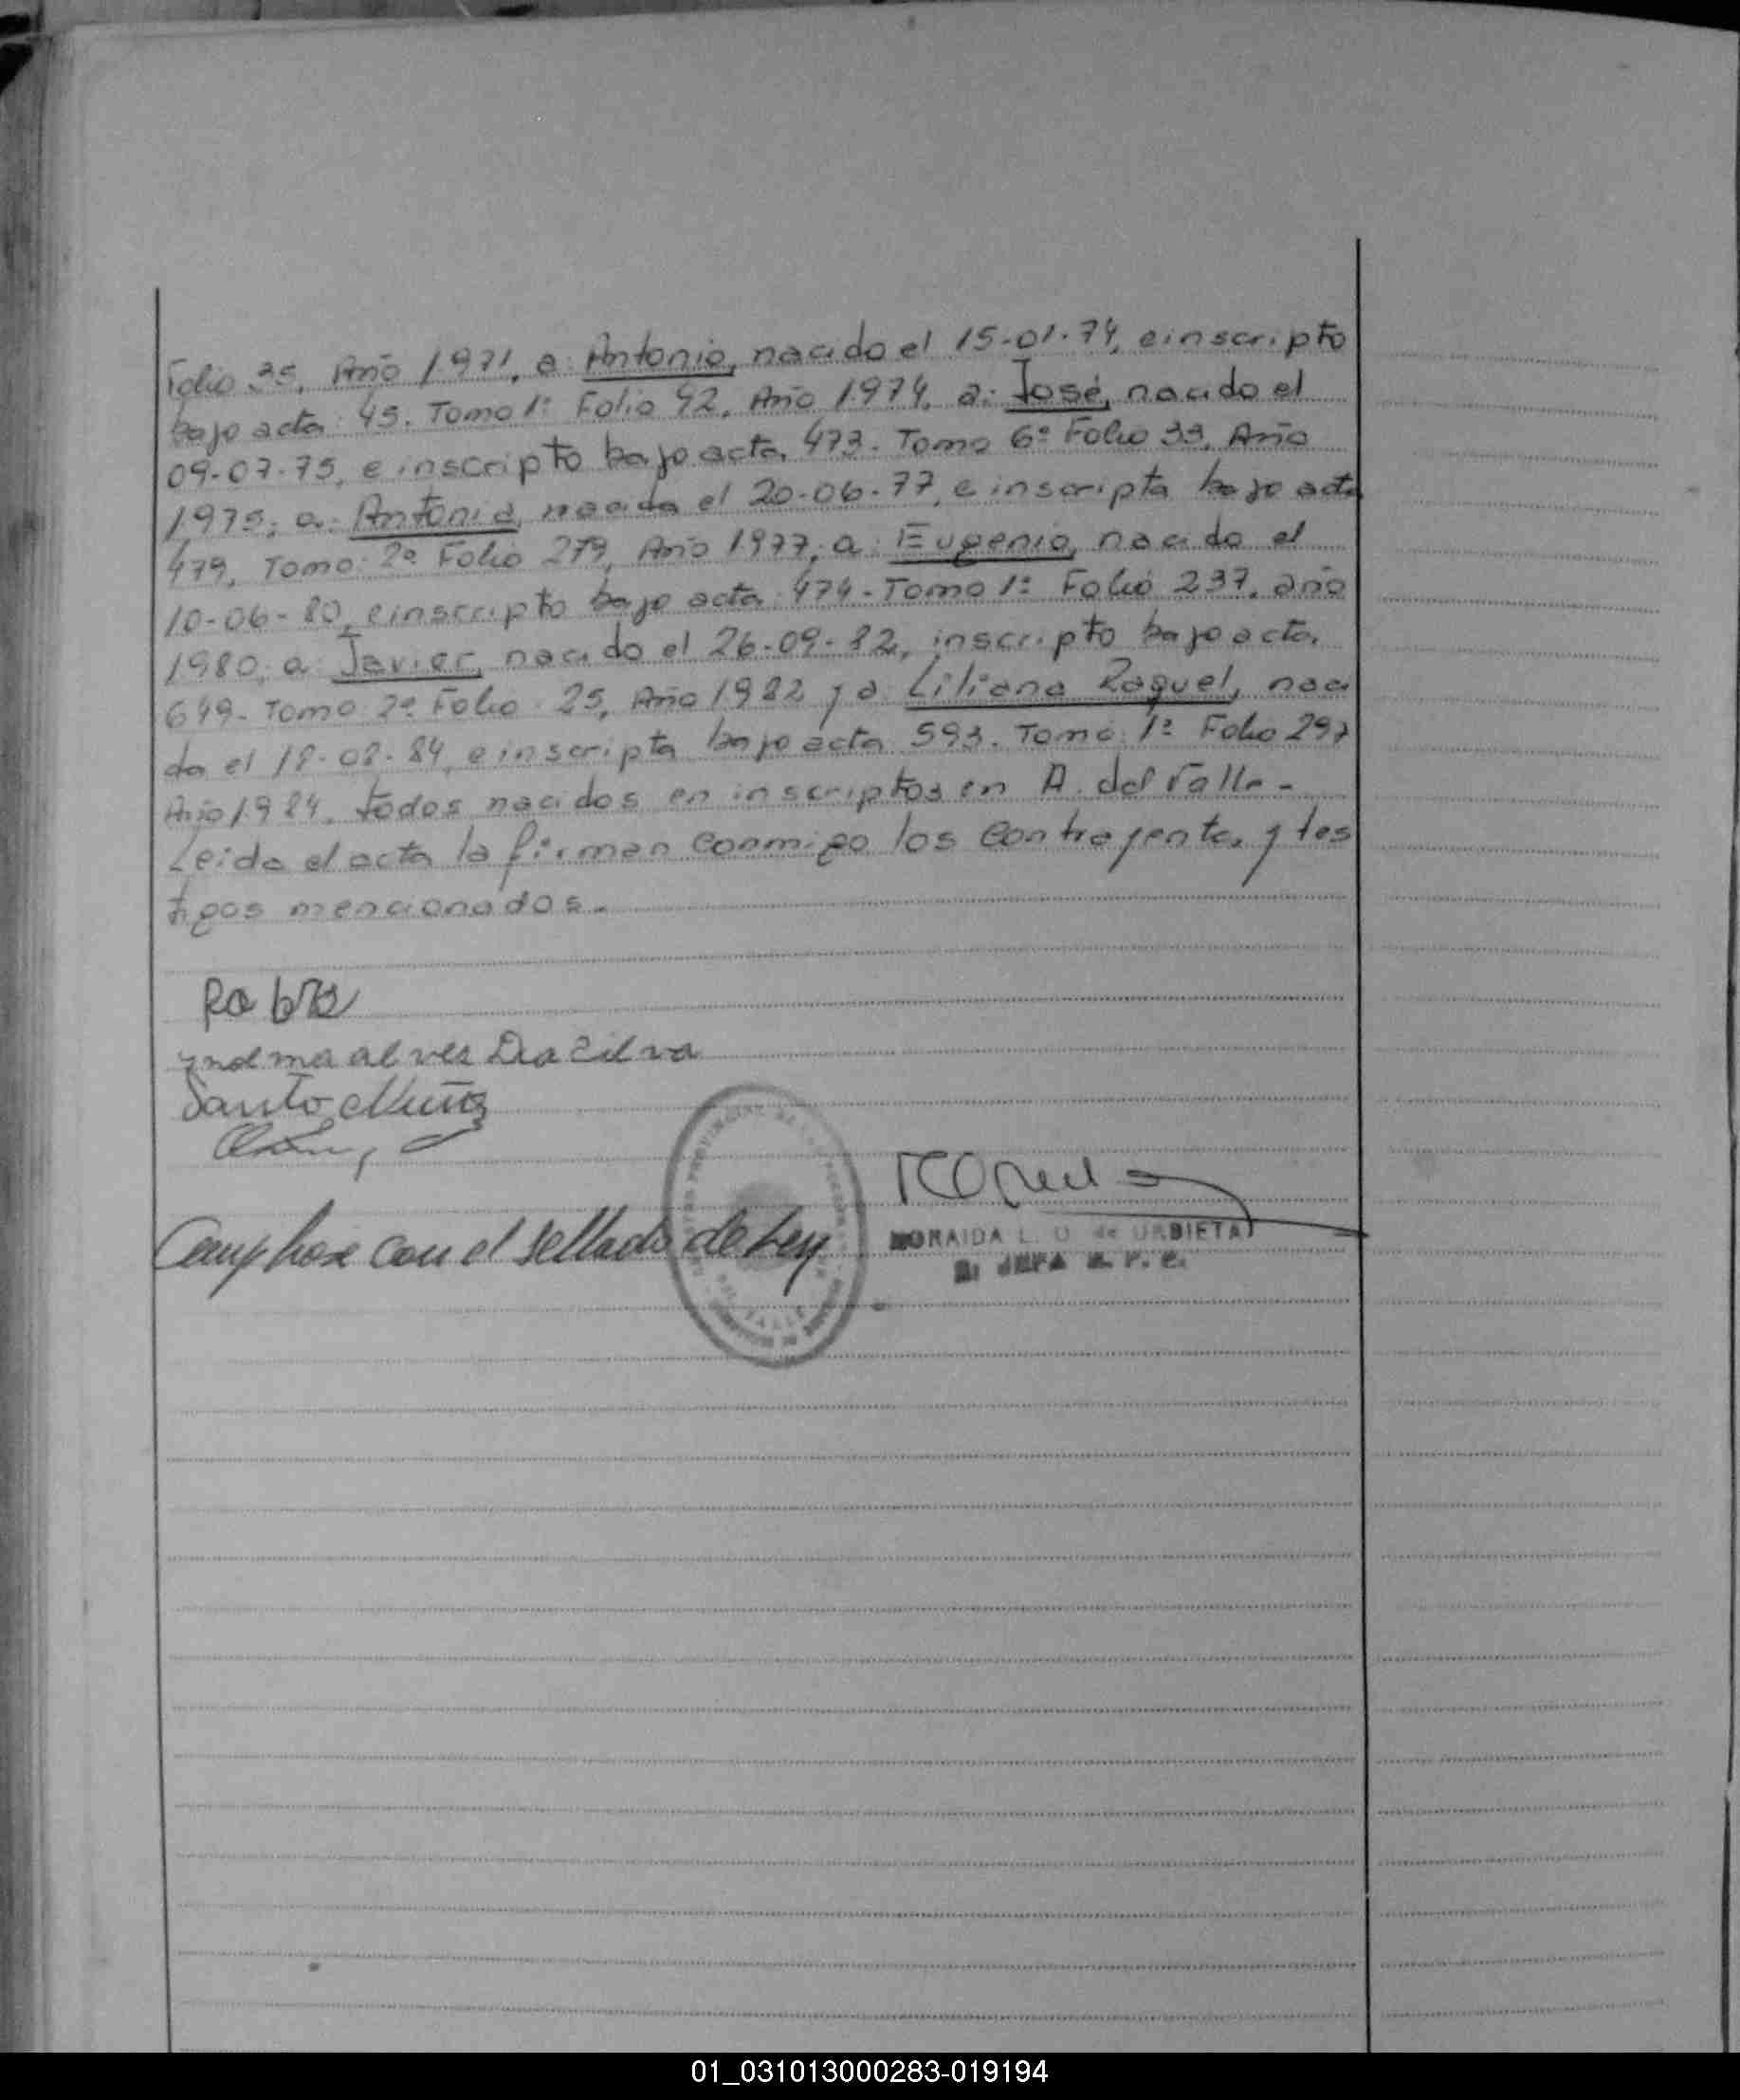 Folio 35, Año 1.971, a: Antonio, nacido el 15-01-74, e inscripto
bajo acta: 45. Tomo 1º Folio 42. Año 1.974. a: José, nacido el
09-07-75, e inscripto bajo acta. 473. Tomo 6º Folio 33. Año
1.975; a: Antonia, nacida el 20-06-77, e inscripta bajo acta
479, Tomo: 2º Folio 279, Año 1.977; a: Eugenio, nacido el
10-06-80, e inscripto bajo acta: 474-Tomo 1º Folio 237. año
1.980; a: Javier, nacido el 26-09-82, inscripto bajo acta.
649-Tomo 2º Folio 25, Año 1.982 y a: Liliana Raquel, naci
da el 18-02-84, e inscripta bajo acta 593. Tomo: 1º Folio 297
Año 1.984. todos nacidos en inscriptos en A. del Valle-
Leida el acta la firman conmigo los contrayente, y tes
tigos mencionados.
ynolma alves Da Silva
Santo Muñoz
Campbose con el sellado de Ley
NORAIDA L. O. de URBIETA
JEFA R. P. C.
01_031013000283-019194